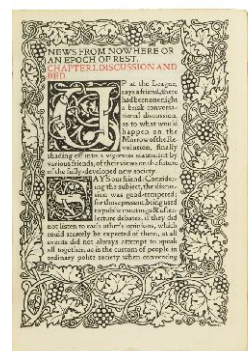 NEWS FROM NOWHERE OR
AN EPOCH OF REST.
CHAPTER I. DISCUSSION AND
BED.
UP at the League,
says a friend, there
had been one night
a brisk conversa-
tional discussion,
as to what would
happen on the
Morrow of the Re-
volution, finally
shading off into a vigorous statement by
various friends, of their views on the future
of the fully-developed new society.
SAYS our friend: Consider-
ing the subject, the discus-
sion was good-tempered;
for those present, being used
to public meetings & after-
lecture debates, if they did
not listen to each other's opinions, which
could scarcely be expected of them, at all
events did not always attempt to speak
all together, as is the custom of people in
ordinary polite society when conversing